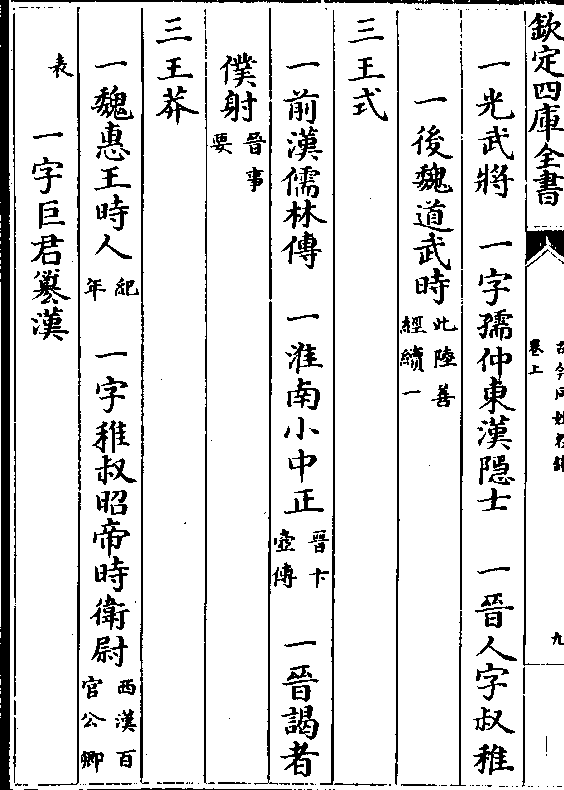 欽定四庫全書
卷上
古今同姓名錄
九
一光武將　一字孺仲東漢隱士　一晉人字叔稚
一後魏道武時此陸善經續一
三王式
一前漢儒林傳　一淮南小中正晉卞壺傳　一晉謁者
僕射晉事要
三王莽
一魏惠王時人紀年　一字稚叔昭帝時衛尉西漢百官公卿
表　一字巨君簒漢